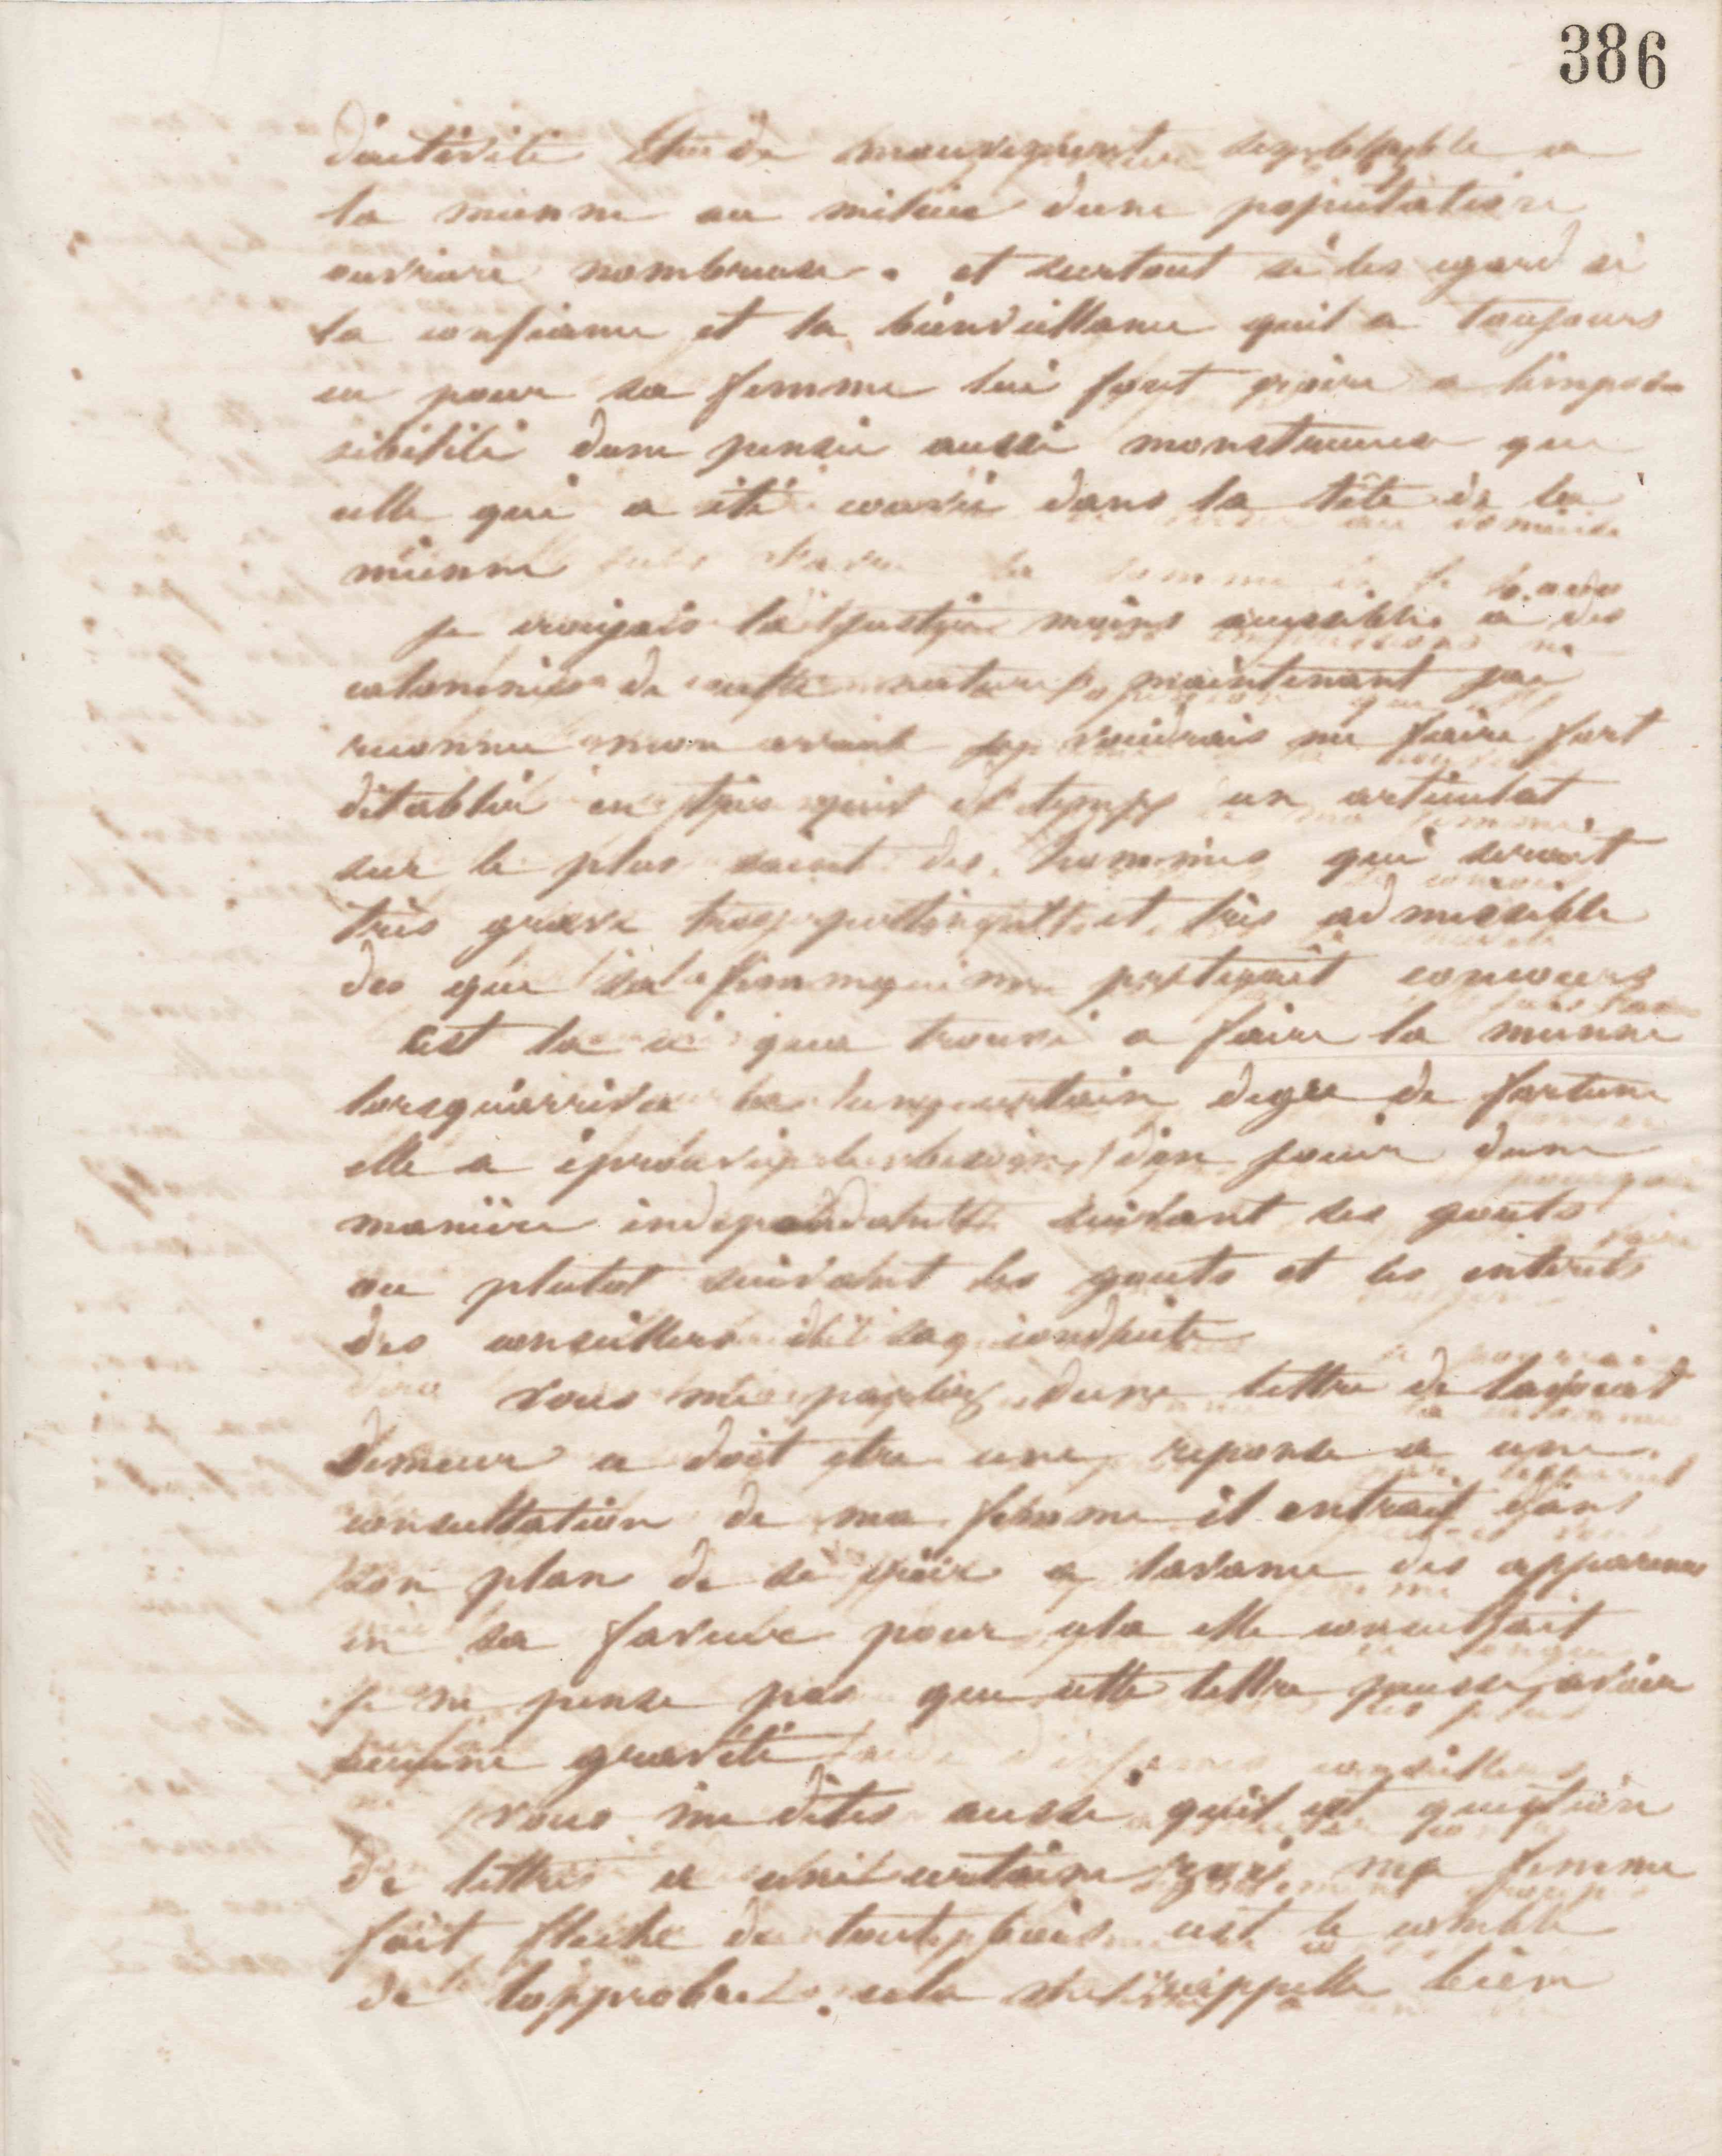 386
d'activité et de mouvement semblable a
la mienne au milieu dune population
ouvriere nombreuse. et surtout si les egard si
la confiance et la bienveillance quil a toujours
eu pour sa femme lui font croire a limpos-
sibilité dune pensée aussi monstrueuse que
celle qui a été couvée dans la tête de la
mienne
je croyais la justice moins accessible a des
calomnies de cette nature maintenant jai
reconnu mon erreur je voudrais me faire fort
détablir en très peu de temps un articulat
sur le plus saint des hommes qui serait
très grave très pertinent et très admissible
des que sa femme me preterait concours
Cest la ce qua trouvé a faire la mienne
lorsquarrivée a un certain degre de fortune
elle a éprouvé le besoin den jouir dune
maniere independante suivant ses gouts
ou plutot suivant les gouts et les interets
des conseillers de sa conduite
vous me parlez dune lettre de lavocat
Demeur ce doit etre une reponse a une
consultation de ma femme il entrait dans
son plan de se créer a lavance des apparences
en sa faveur pour cela elle consultait
je ne pense pas que cette lettre puisse avoir
aucune gravité
vous me dites aussi quil est question
de lettres a une certaine ma femme
fait fleche de tout bois cest le comble
de lopprobre. cela rappelle bien